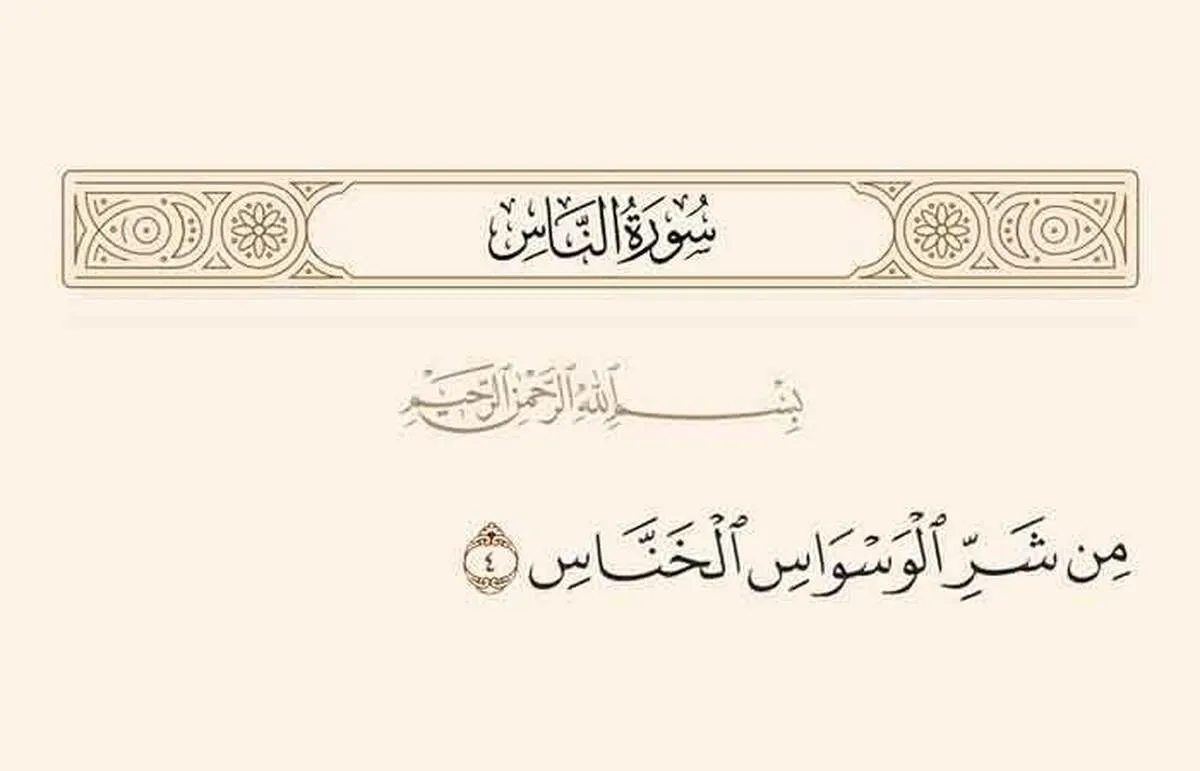 سُورَةُ النَّاسِ
بِسْمِ ٱللَّهِ ٱلرَّحْمَٰنِ ٱلرَّحِيمِ
مِن شَرِّ ٱلْوَسْوَاسِ ٱلْخَنَّاسِ ٤